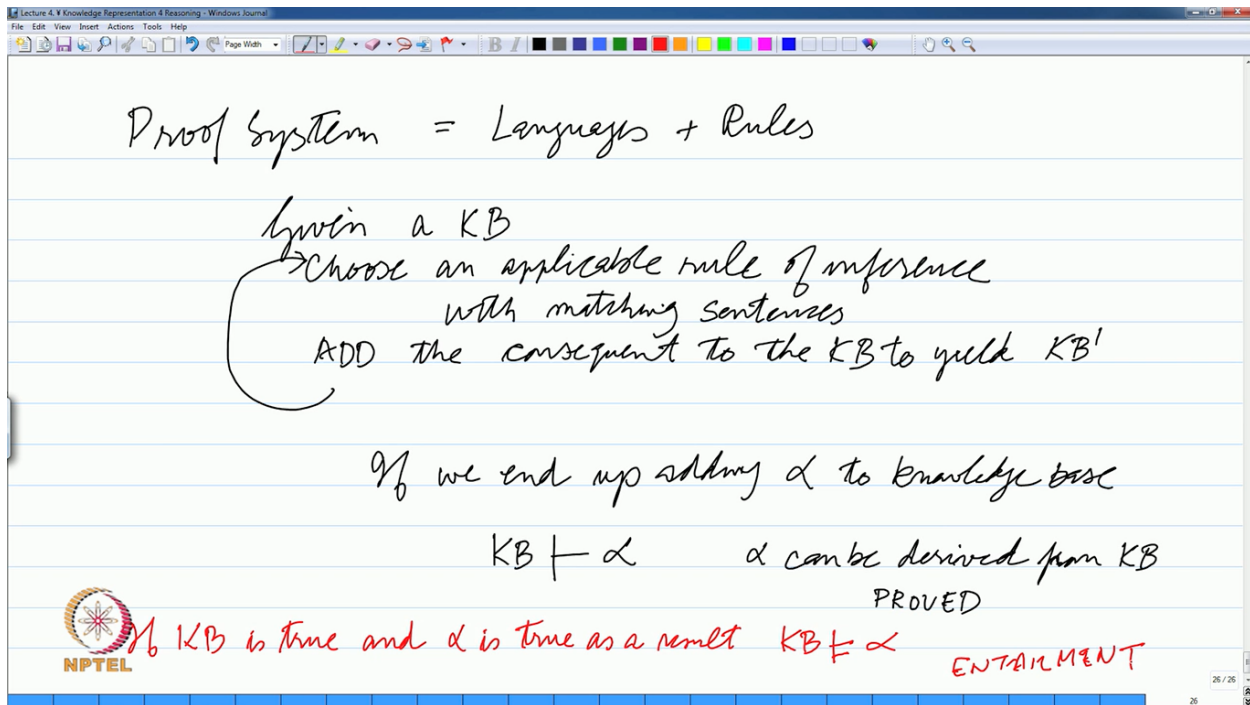 Lecture 4. ¥ Knowledge Representation 4 Reasoning - Windows Journal
File Edit View Insert Actions Tools Help
Page Width
B I
Proof System = Languages + Rules
Given a KB
Choose an applicable rule of inference
with matching sentences
ADD the consequent to the KB to yield KB'
If we end up adding α to knowledge base
KB ⊢ α α can be derived from KB
PROVED
If KB is true and α is true as a result KB ⊨ α
ENTAILMENT
NPTEL
26 / 26
26